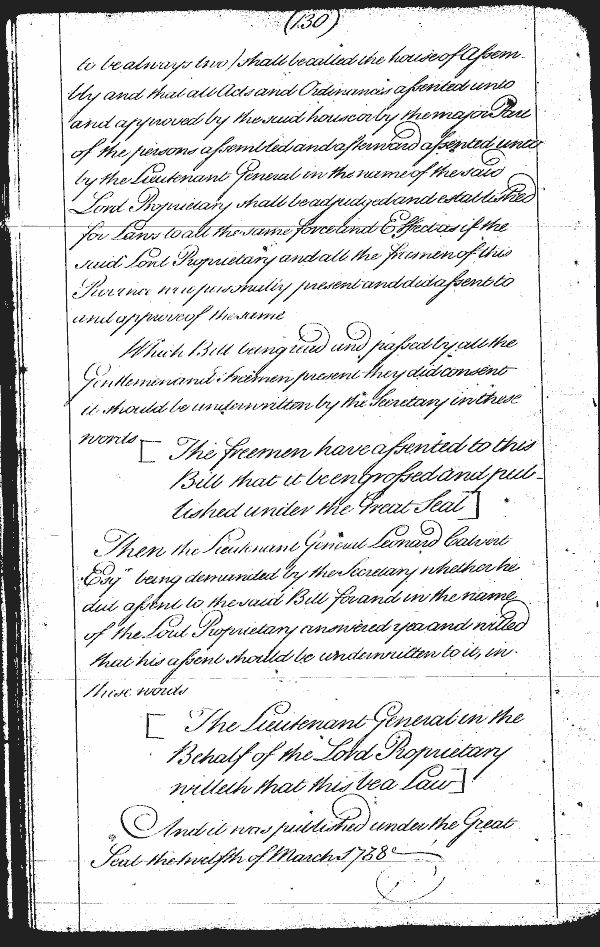 (130)
to be always two) shall be called the house of Assem-
bly and that all Acts and Ordinances assented unto
and approved by the said house or by the major Part
of the persons assembled and afterward assented unto
by the Lieutenant General in the name of the said
Lord Proprietary shall be adjudged and established
for Laws to all the same force and Effect as if the
said Lord Proprietary and all the freemen of this
Province were personally present and did assent to
and approve of the same
Which Bill being read and passed by all the
Gentlemen and Freemen present they did consent
it should be underwritten by the Secretary in these
words [ The freemen have assented to this
Bill that it be engrossed and pub-
lished under the Great Seal ]
Then the Lieutenant General Leonard Calvert
Esqr being demanded by the Secretary whether he
did assent to the said Bill for and in the name
of the Lord Proprietary answered yea and willed
that his assent should be underwritten to it, in
these words
[ The Lieutenant General in the
Behalf of the Lord Proprietary
willeth that this be a Law ]
And it was published under the Great
Seal the twelfth of March 1738